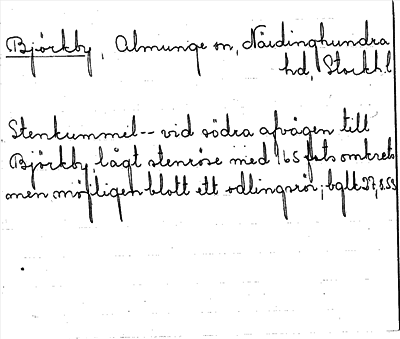 Björkby, Almunge sn, Närdinghundra
hd, Stockh.l
Stenkummel -- vid södra afvägen till
Björkby, lågt stenröse med 165 fots omkrets
men möjligen blott ett odlingsrör;